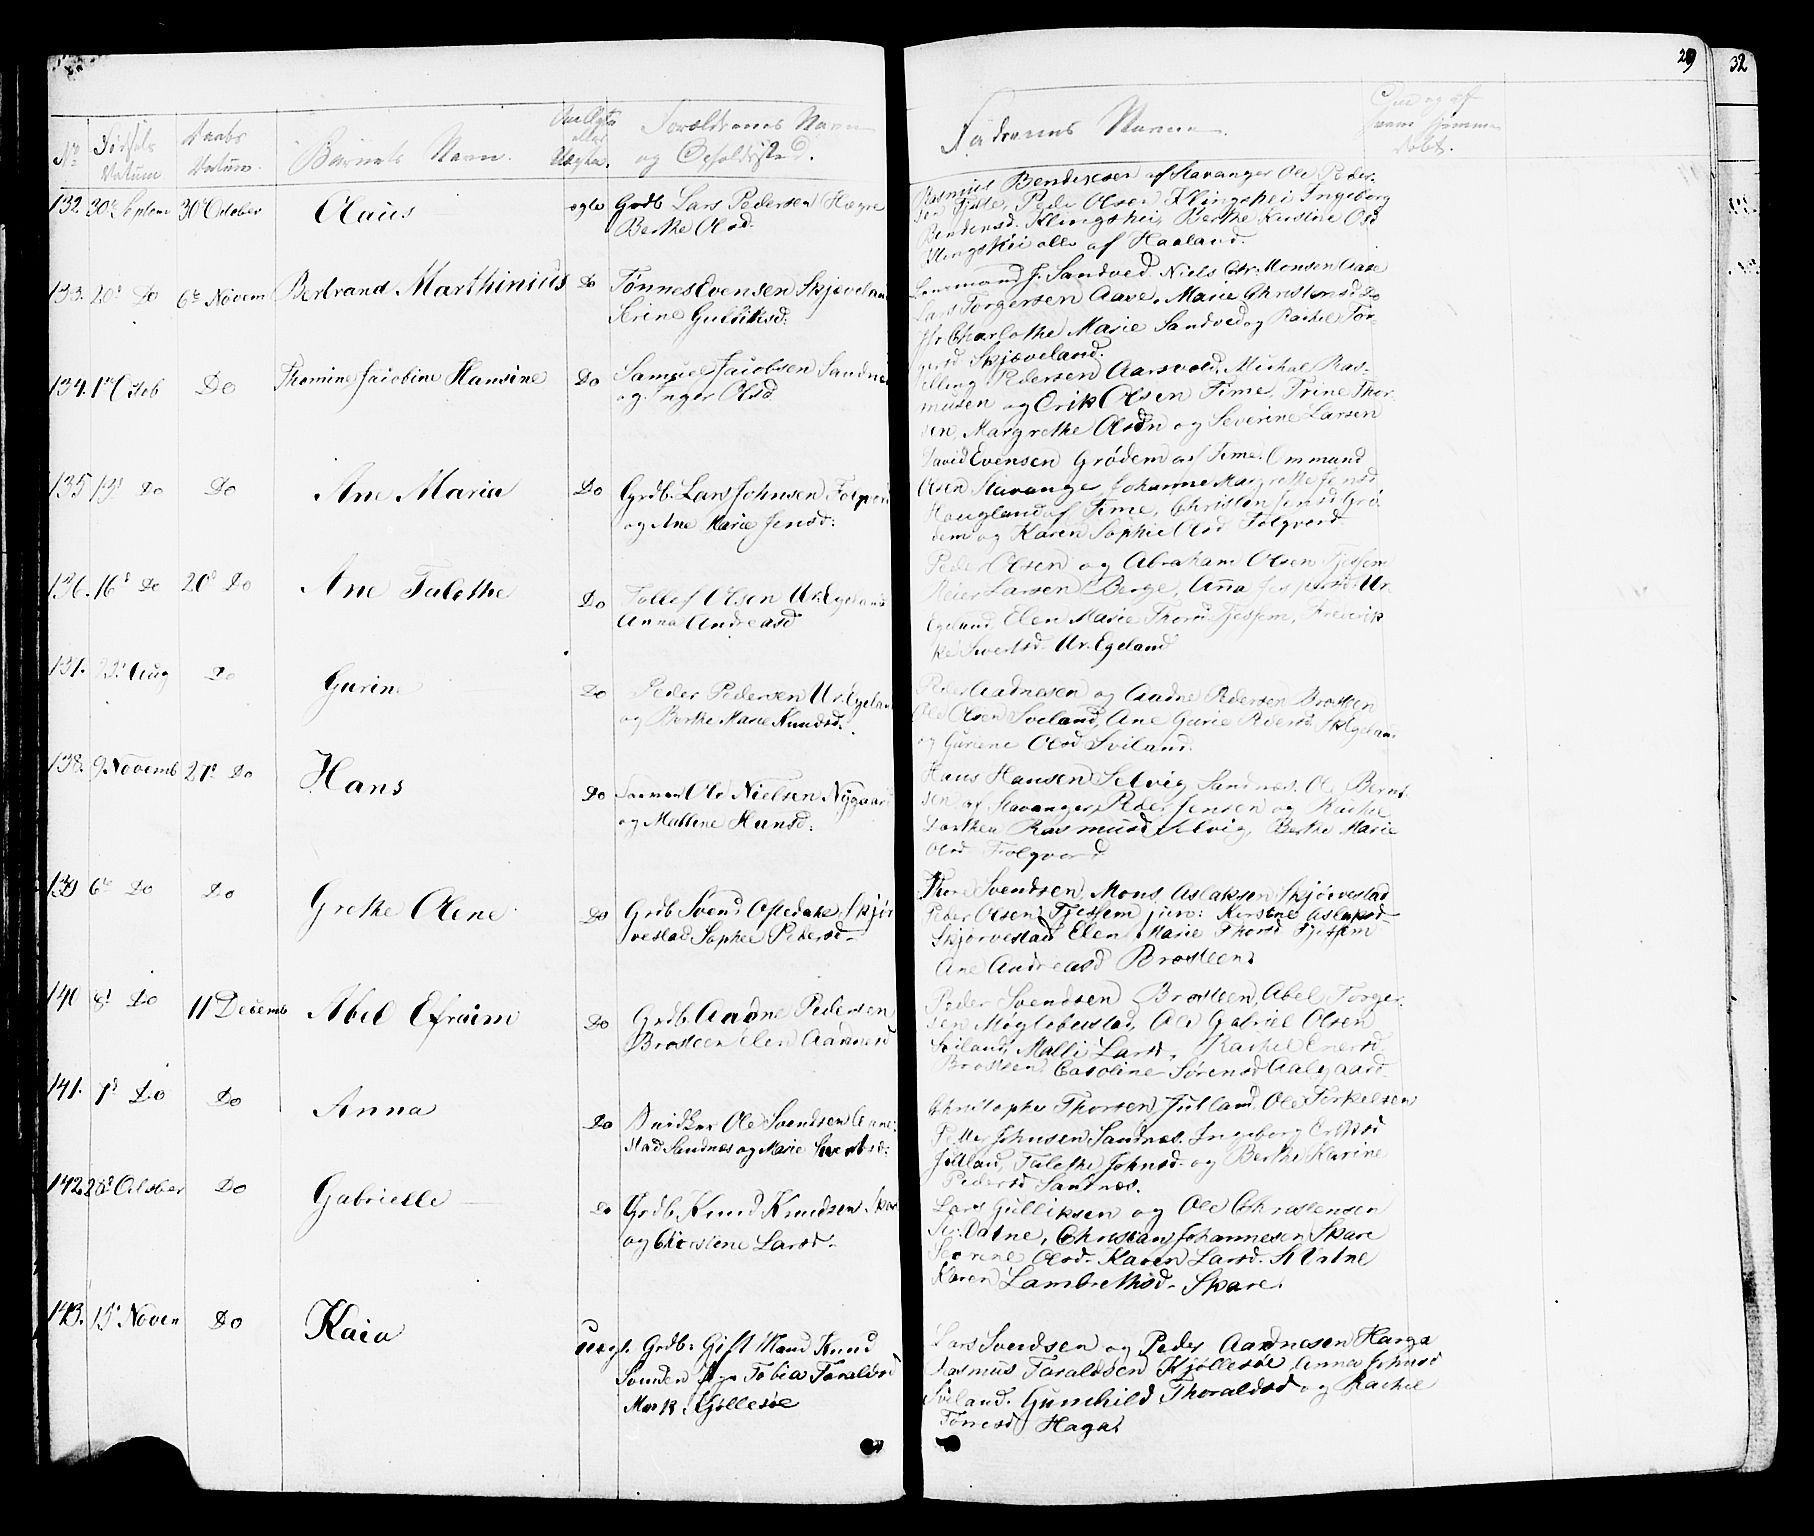 29
32
No
Fødsels
Datum
Daabs
Datum
Barnets Navn.
om Ægte
eller
Uægte.
Forældrenes Navn
og Opholdssted.
Faddernes Navne.
af
hvem hjemme
døbt.
132. 30e Septem 30e October Claus ægte Grdb. Lars Pedersen Høgre
Berthe Olsd.
Rasmus Bendixen af Stavanger Ole Peder-
sen Peder Olsen Klingshei Ingeborg
Klingshei, Berthe Kirstine Olsd
Klingshei alle af Haaland.
133. 20e Do 6te Novem Bertrand Marthinius Do Tønnes Evensen Skjæveland
Serine Gulliksd:
Lensmand J. Sandved Niels Chr. Monsen Aase
Lars Torgersen Aase, Marie Christensd Do
Charlothe Marie Sandved og Rachel Tor-
gersd Skjæveland.
134. 1ste Octob Do Thomine Jacobine Hansine Do Samuel Jacobsen Sandnes
og Inger Olsd
Elling Pedersen Aarsvold, Michal Ras-
musen og Erik Olsen Time, Trine Thor-
sen, Margrethe Olsdn og Severine Larsen
135 19d Do Do Ane Maria Do Grdb. Lars Johnsen Folqvord
og Ane Marie Jensd:
David Evensen Grødem af Time. Ommund
Olsen Stavanger, Johanne Margrethe Jensd
Haugland af Time, Christen Jensd Grø-
dem og Karen Sophie Olsd Folqvord
136. 16d Do 20d Do Ane Talethe Do Tollef Olsen Ur. Egeland
Anna Andreasd
Peder Olsen og Abraham Olsen Tjessem
Reier Larsen Berge, Anna Jespersd Ur.
Egeland Elen Marie Thorsd Tjessem, Frederik-
ke Sivertsd Ur. Egeland
137. 23d Aug Do Gurine Do Peder Pedersen Ur. Egeland
og Berthe Marie Knudsd.
Peder Aadnesen og Aadne Pedersen Brosteen
Ole Olsen Sviland, Ane Gurie Pedersd Egeland
og Guriene Olsd Sviland.
138. 9 Novemb 27d Do Hans Do Ole Nielsen Nygaard
og Mallene Hansd:
Hans Hansen Selvig Sandnes. Ole Bernt-
sen af Stavanger, Peder Jensen og Rachel
Dorthea Rasmusd Selvig, Berthe Marie
Olsd Folqvord
139 6te Do Do Grethe Olene Do Grdb Svend Oftedale, Skjør-
vestad Sophie Pedersd
Thore Svendsen, Mons Aslaksen Skjørvestad
Peder Olsen Tjessem jun: Kirstine Aslaksd
Skjørvestad Elen Marie Thorsd Tjessem
Ane Andreasd Brosteen.
140 8d Do 11 Decemb Abel Efraim Do Grdb. Aadne Pedersen
Brosteen Elen Aadnesd
Peder Svendsen Brosteen, Abel Torger-
sen Møglebustad, Ole Gabriel Olsen
Sviland, Malli Larsd, Rachel Enersd
Brosteen Caroline Sørensd Aalgaard
141. 7d Do Do Anna Do Snidker Ole Svendsen Aane-
stad Sandnes og Marie Sivertsd:
Christopher Thorsen Julland, Ole Torkelsen
Petter Johnsen Sandnes. Ingeborg Eriksd
Julland, Talethe Johnsd. og Berthe Karine
Pedersd Sandnes.
142. 28d October Do Gabrielle Do Grdb. Knud Knudsen Skare
og Christine Larsd.
Lars Gulliksen og Ole Christensen
St. Vatne, Christian Johannesen Skare
Serine Olsd. Karen Larsd. St Vatne
Karen Lambrethsd. Skare.
143. 15d Novem Do Kaia uægt. Grdb. Gift Mand Knud
Svendsen Pige Tobia Taraldsd
Kjøllesøe
Lars Svendsen og Peder Aadnesen Hauga
Rasmus Taraldsen Kjøllesøe Anna Johnsd
Sviland. Gunchild Thoraldsd og Rachel
Tørresd Haga.